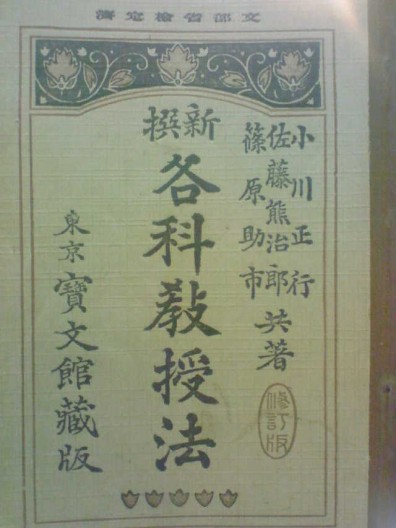 文部省檢定濟
小川正行
佐藤熊治郎
篠原助市
共著
修訂版
新撰
各科敎授法
東京 寶文館藏版